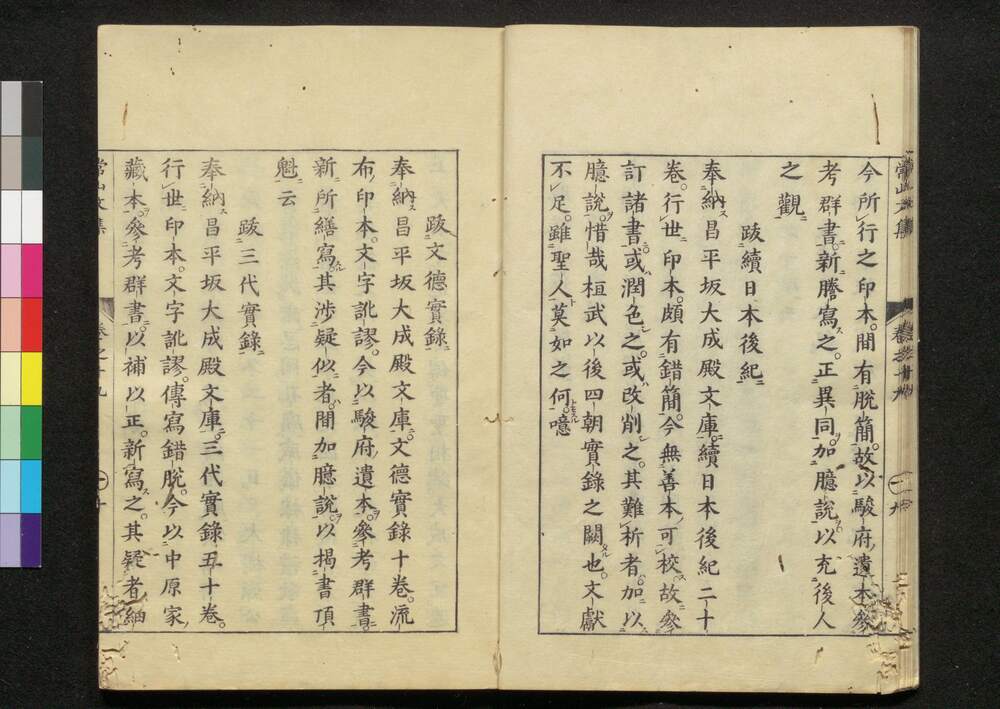 今所行之印本。間有脫簡。故以駿府遺本。參
考群書。新謄寫之。正異同。加臆說以充後人
之觀
跋續日本後紀
奉納昌平坂大成殿文庫。續日本後紀二十
卷。行世印本。頗有錯簡。今無善本可校。故參
訂諸書。或潤色之。或改削之。其難析者。加以
臆說。惜哉桓武以後四朝實錄之闕也。文獻
不足。雖聖人莫如之何。噫
跋文德實錄
奉納昌平坂大成殿文庫。文德實錄十卷。流
布印本。文字訛謬。今以駿府遺本。參考群書。
新所繕寫。其涉疑似者。間加臆說。以揭書頂
魁云
跋三代實錄
奉納昌平坂大成殿文庫。三代實錄五十卷。
行世印本。文字訛謬。傳寫錯脫。今以中原家
藏本。參考群書。以補以正。新寫之。其疑者細
常山文集
卷之十九
十